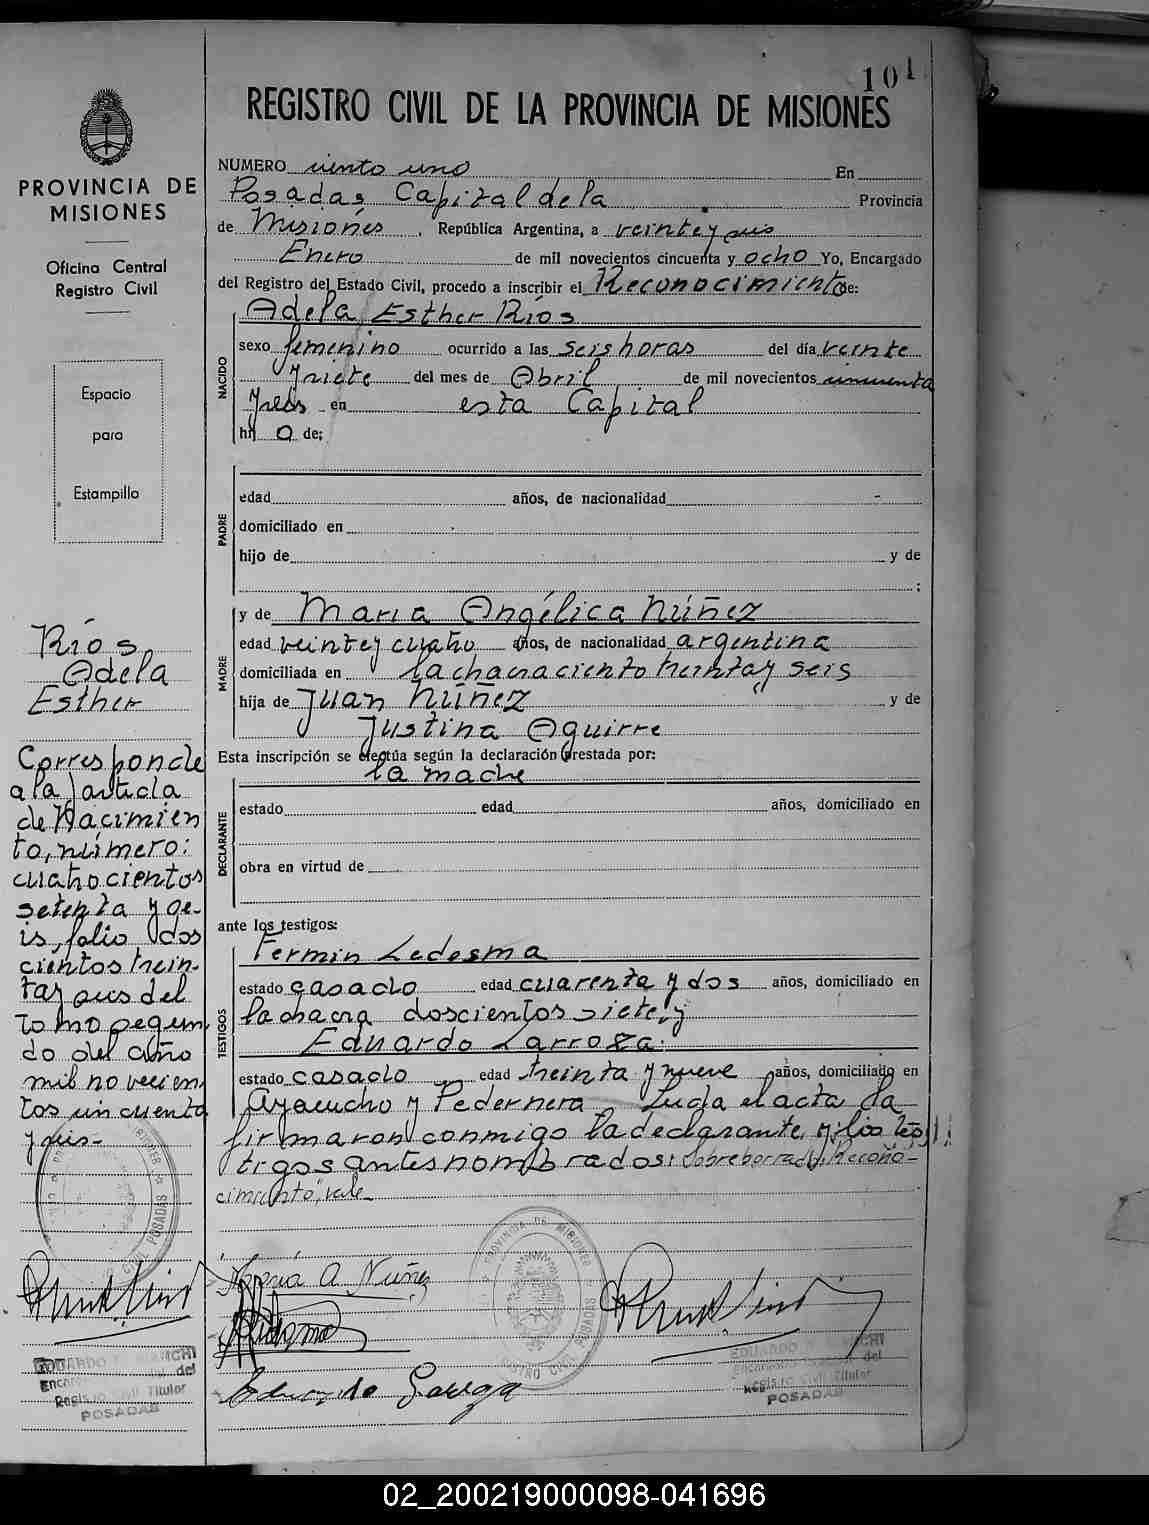 101
REGISTRO CIVIL DE LA PROVINCIA DE MISIONES
NUMERO ciento uno En
Posadas Capital de la Provincia
de Misiones , República Argentina, a veinte y seis
Enero de mil novecientos cincuenta y ocho Yo, Encargado
del Registro del Estado Civil, procedo a inscribir el Reconocimiento de:
NACIDO
Adela Esther Ríos
sexo femenino ocurrido a las seis horas del día veinte
y siete del mes de Abril de mil novecientos cincuenta
y tres en esta Capital
hij o de;
PADRE
edad años, de nacionalidad -
domiciliado en
hijo de y de
;
MADRE
y de María Angélica Núñez
edad veinte y cuatro años, de nacionalidad argentina
domiciliada en la chacra ciento treinta y seis
hija de Juan Núñez y de
Justina Aguirre
Esta inscripción se efectúa según la declaración prestada por:
la madre
DECLARANTE
estado edad años, domiciliado en
obra en virtud de
ante los testigos:
TESTIGOS
Fermin Ledesma
estado casado edad cuarenta y dos años, domiciliado en
la chacra doscientos siete, y
Eduardo Larroza.
estado casado edad treinta y nueve años, domiciliado en
Ayacucho y Pedernera Leida el acta la
firmaron conmigo la declarante y los tes
tigos antes nombrados: Sobreborrado: Recono-
cimiento, vale
María A. Núñez
PROVINCIA DE MISIONES
REGISTRO CIVIL POSADAS
EDUARDO BIANCHI
Encargado del
Registro Civil Titular
POSADAS
PROVINCIA DE
MISIONES
Oficina Central
Registro Civil
Espacio
para
Estampilla
Ríos
Adela
Esther
Corresponde
a la partida
de Nacimien
to, número:
cuatrocientos
setenta y se-
is, folio dos
cientos trein-
ta y seis del
tomo segun
do del año
mil novecien
tos cincuenta
y seis-
CIVIL POSADAS
EDUARDO BIANCHI
Encargado del
Registro Civil Titular
POSADAS
02_200219000098-041696